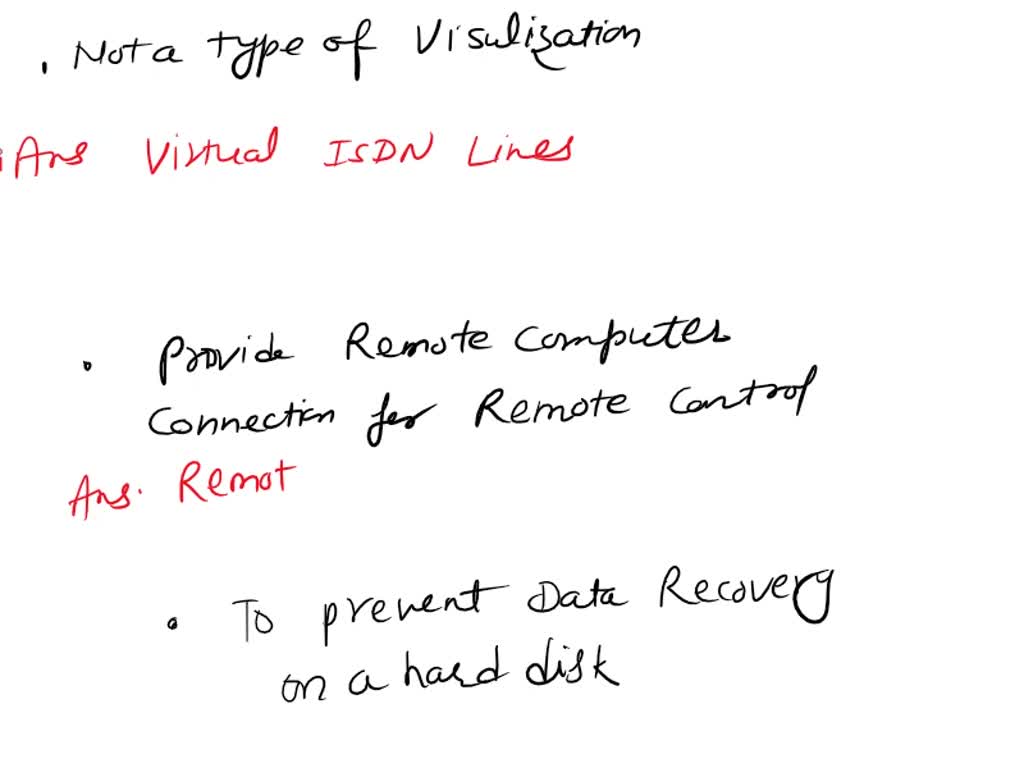 . Not a type of Visulization
Ans Virtual ISDN Lines
. Provide Remote Computer
Connection for Remote Control
Ans. Remot
. To prevent Data Recovery
on a hard disk